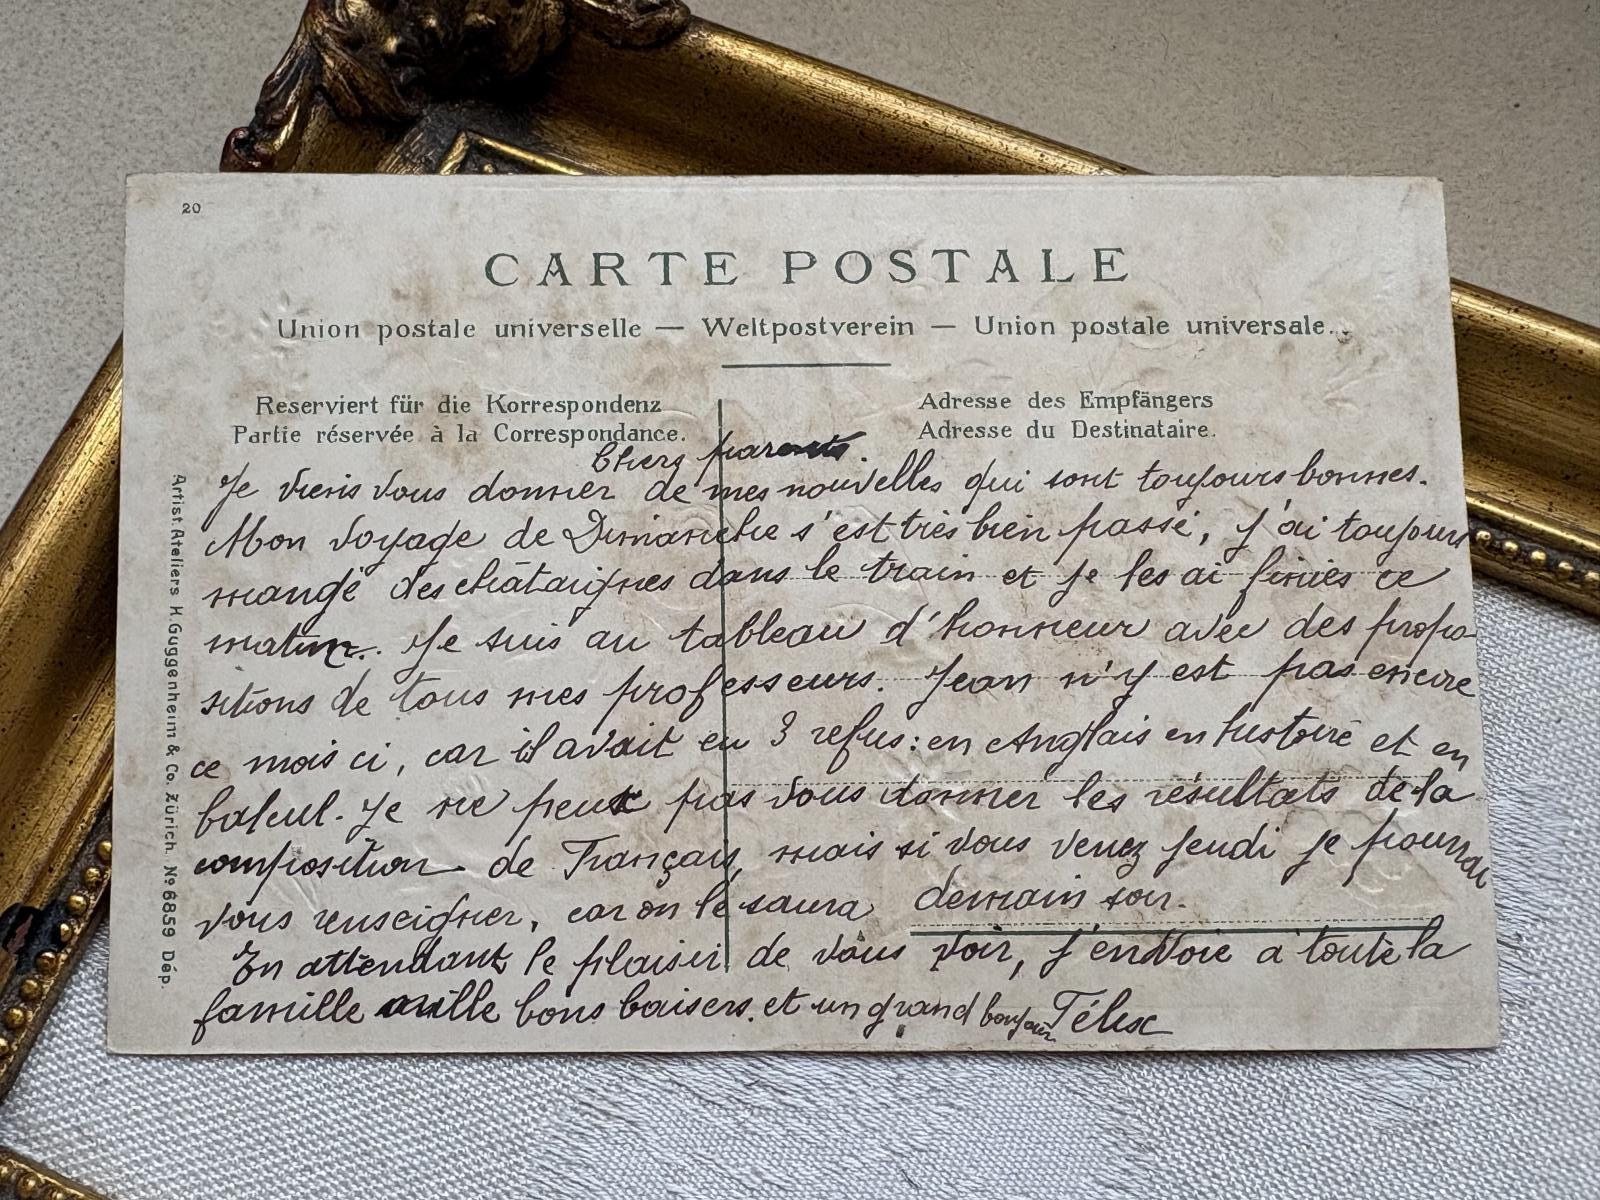 20
CARTE POSTALE
Union postale universelle — Weltpostverein — Union postale universale.
Reserviert für die Korrespondenz
Partie réservée à la Correspondance.
Adresse des Empfängers
Adresse du Destinataire.
Artist. Ateliers H. Guggenheim & Co. Zürich. Nº 6859 Dép.
Chers parents.
Je viens vous donner de mes nouvelles qui sont toujours bonnes.
Mon voyage de Dimanche s'est très bien passé, j'ai toujours
mangé des châtaignes dans le train et je les ai finies ce
matin. Je suis au tableau d'honneur avec des propo-
sitions de tous mes professeurs. Jean n'y est pas encore
ce mois ci, car il avait eu 3 refus: en Anglais en histoire et en
Calcul. Je ne peux pas vous donner les résultats de la
composition de Français, mais si vous venez Jeudi je pourrai
vous renseigner, car on le saura demain soir.
En attendant le plaisir de vous voir, j'envoie à toute la
famille mille bons baisers. et un grand bonjour Félix